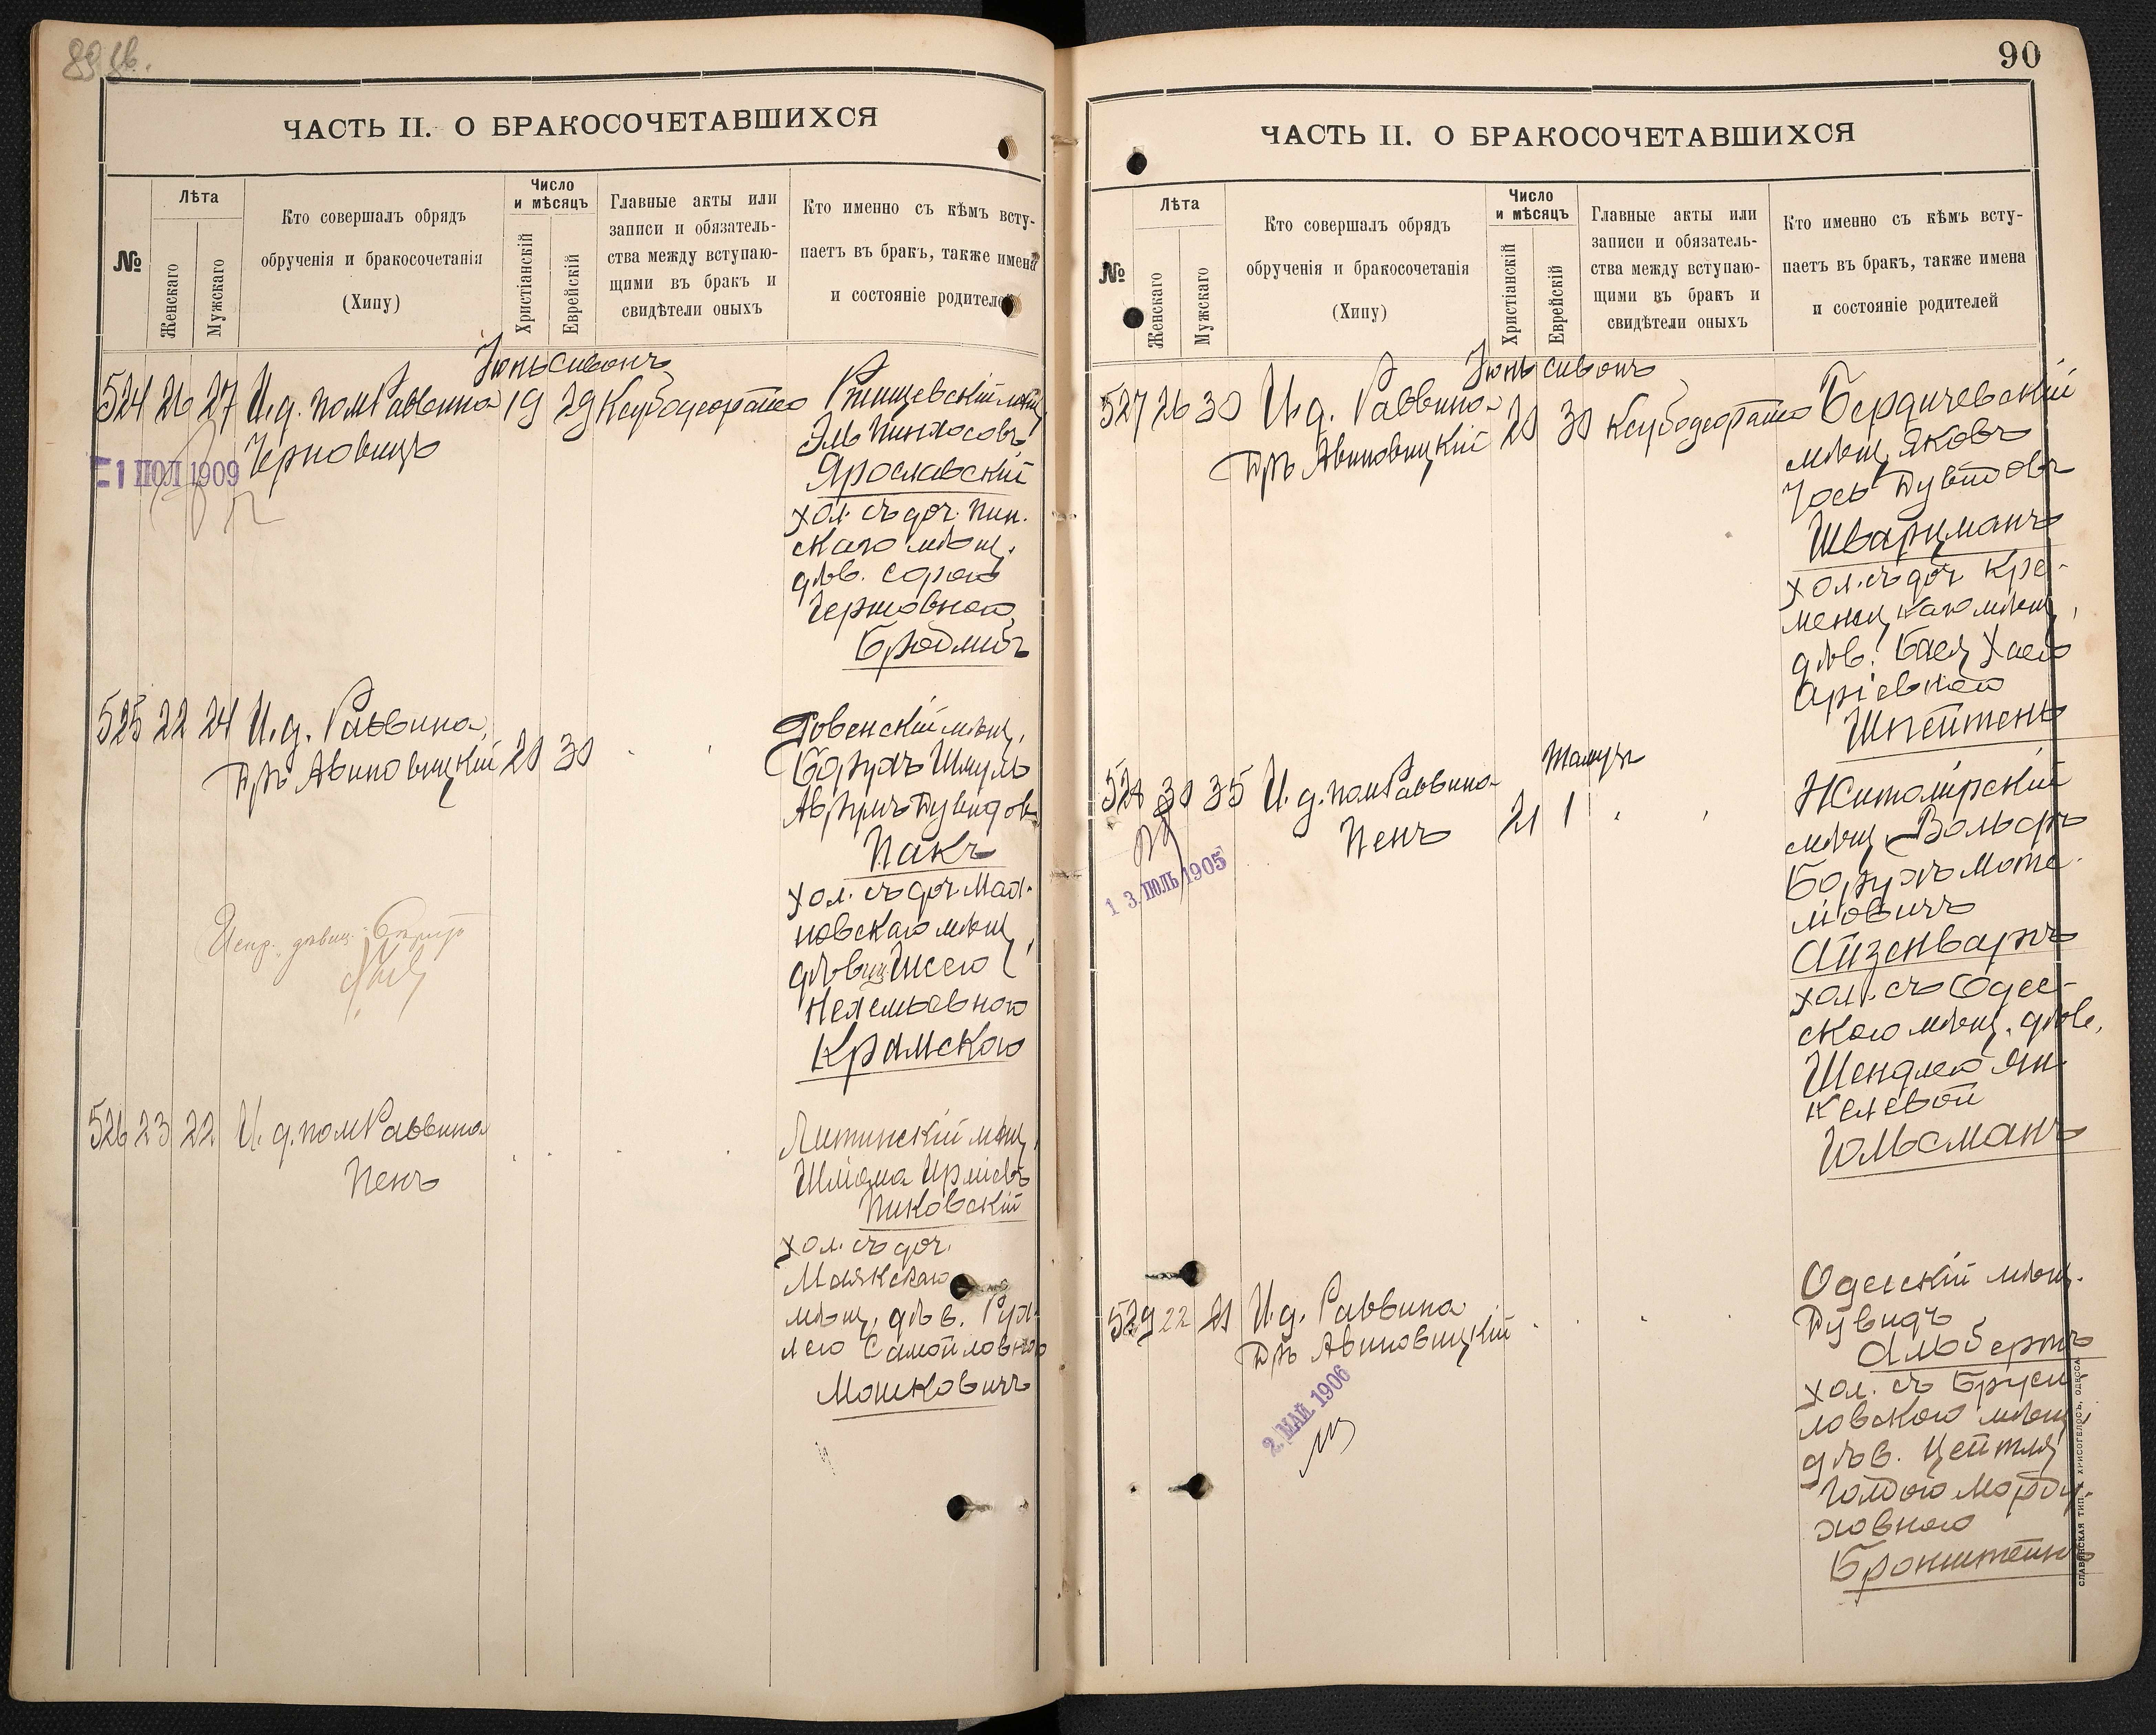 ЧАСТЬ II. О БРАКОСОЧЕТАВШИХСЯ
№
Лѣта
Женскаго
Мужскаго
Кто совершалъ обрядъ
обрученія и бракосочетанія
(Хипу)
Число
и мѣсяцъ
Христіанскій
Еврейскій
Главные акты или
записи и обязатель-
ства между вступаю-
щими въ бракъ и
свидѣтели оныхъ
Кто именно съ кѣмъ всту-
паетъ въ бракъ, также имена
и состояніе родителей
Іюнь сивонъ
524 26 27 И.д. пом Раввина 19 29
Черновицъ
1 ІЮЛ 1909
Эль Пинхосовъ
Ярославскій
хол. съ доч. Пин.
скаго мѣщ.
дѣв. Сорою
Гершовною
Бродмиръ
525 22 24 И.д. Раввина
Дръ Авиновицкій 20 30
Ровенскій мѣщ.
Борухъ Шмуль
Аврумъ Дувидовъ
Пакъ
хол. съ доч. Мая-
новскаго мѣщ.
дѣвиц
Нехемьевною
Крамскою
526 23 22 И.д. пом Раввина
Пенъ
Литинскій мѣщ.
Шліома
Пиковскій
хол. съ доч.
Маякскаго
мѣщ. дѣв. Рух-
лею Самойловною
Мошковичъ
90
ЧАСТЬ II. О БРАКОСОЧЕТАВШИХСЯ
№
Лѣта
Женскаго
Мужскаго
Кто совершалъ обрядъ
обрученія и бракосочетанія
(Хипу)
Число
и мѣсяцъ
Христіанскій
Еврейскій
Главные акты или
записи и обязатель-
ства между вступаю-
щими въ бракъ и
свидѣтели оныхъ
Кто именно съ кѣмъ всту-
паетъ въ бракъ, также имена
и состояніе родителей
Іюнь сивонъ
527 26 30 И.д. Раввина 20 30
Дръ Авиновицкій
Бердичевскій
мѣщ. Яковъ
Іось Дувидовъ
Шварцманъ
хол. съ доч. Кре-
менцкаго мѣщ.
дѣв. Бася Хаею
Аріевною
Шпейтенъ
Тамузъ
528 30 35 И.д. пом Раввина
Пенъ 21 1
13 ІЮЛЬ 1905
Житомірскій
мѣщ. Вольфъ
Борухъ Моте-
ліовичъ
Айзенваръ
хол. съ Одес-
скою мѣщ. дѣв.
Шендлею Ян-
келевой
Юльсманъ
529 22 21 И.д. Раввина
Дръ Авиновицкій
2 МАЙ 1906
Одесскій мѣщ.
Дувидъ
Альбертъ
хол. съ Бруси-
ловскою мѣщ.
дѣв. Цейтля
Голдою Морду-
ховною
Бронштейнъ
СЛАВЯНСКАЯ ТИП. ХРИСОГЕЛОСЪ, ОДЕССА